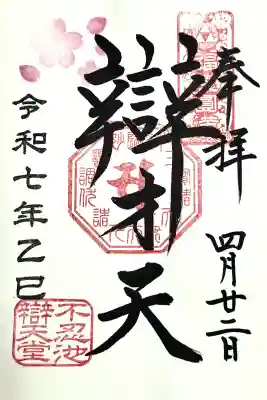 奉拝
四月廿二日
辯才天
令和七年乙巳
不忍池
辯天堂